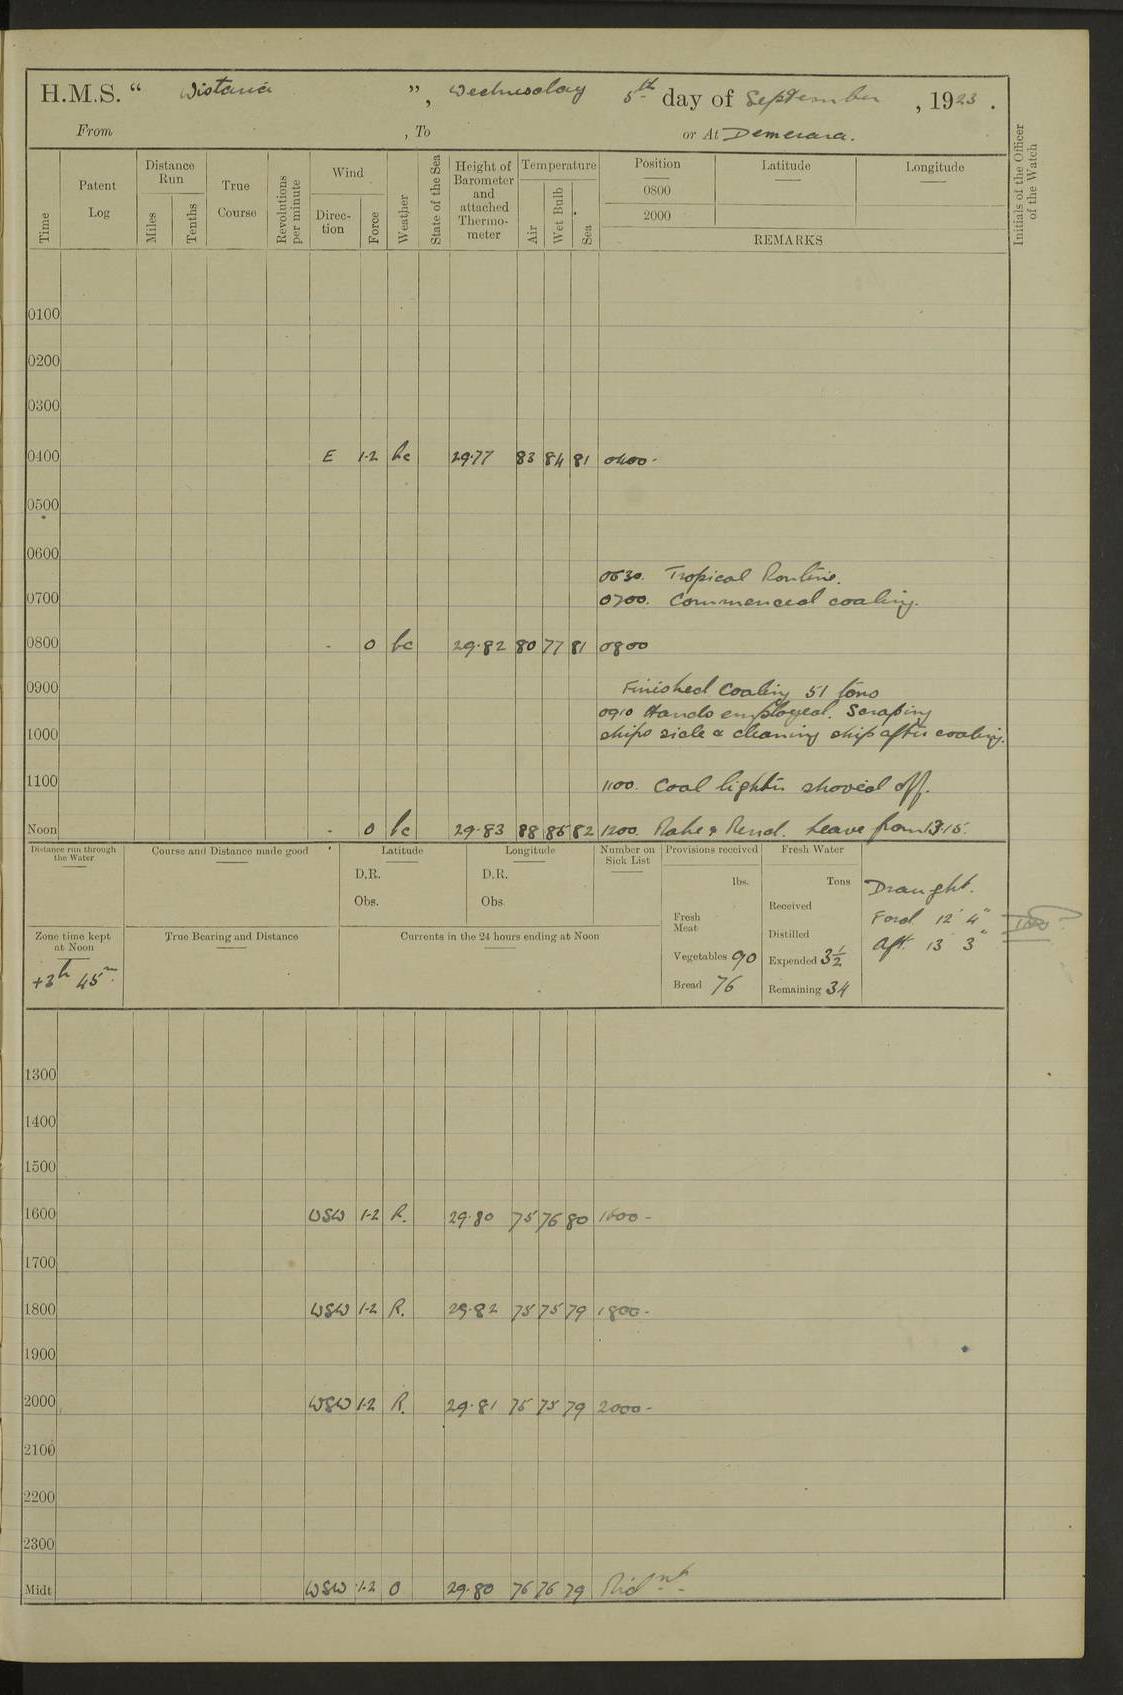 H.M.S. “ Wistaria ”, Wednesday 5th day of September, 1923.
From , To or At Demerara.
Time
Patent Log
Distance Run
Miles
Tenths
True Course
Revolutions per minute
Wind
Direction
Force
Weather
State of the Sea
Height of Barometer and attached Thermometer
Temperature
Air
Wet Bulb
Sea
Position
0800
2000
Latitude
Longitude
REMARKS
Initials of the Officer of the Watch
0100
0200
0300
0400 E 1-2 bc 29.77 83 84 81 0400-
0500
0600
0530. Tropical Routine.
0700 0700. Commenced coaling.
0800 - 0 bc 29.82 80 77 81 0800
0900 Finished Coaling 51 tons
0910 Hands employed. Scraping
1000 ships side & cleaning ship after coaling.
1100 1100. Coal lighter shoved off.
Noon - 0 bc 29.83 88 86 82 1200. Make & Mend. Leave from 1315.
Distance run through the Water
Course and Distance made good
Latitude
D.R.
Obs.
Longitude
D.R.
Obs.
Number on Sick List
Provisions received
lbs.
Fresh Meat
Vegetables 90
Bread 76
Fresh Water
Tons
Received
Distilled
Expended 3½
Remaining 34
Draught.
Ford 12' 4"
Aft. 13' 3"
Zone time kept at Noon
+3h 45m.
True Bearing and Distance
Currents in the 24 hours ending at Noon
1300
1400
1500
1600 WSW 1-2 R. 29.80 75 76 80 1600-
1700
1800 WSW 1-2 R. 29.82 75 75 79 1800-
1900
2000 WSW 1-2 R. 29.81 75 75 79 2000-
2100
2200
2300
Midt WSW 1-2 O 29.80 76 76 79 Midnt.-